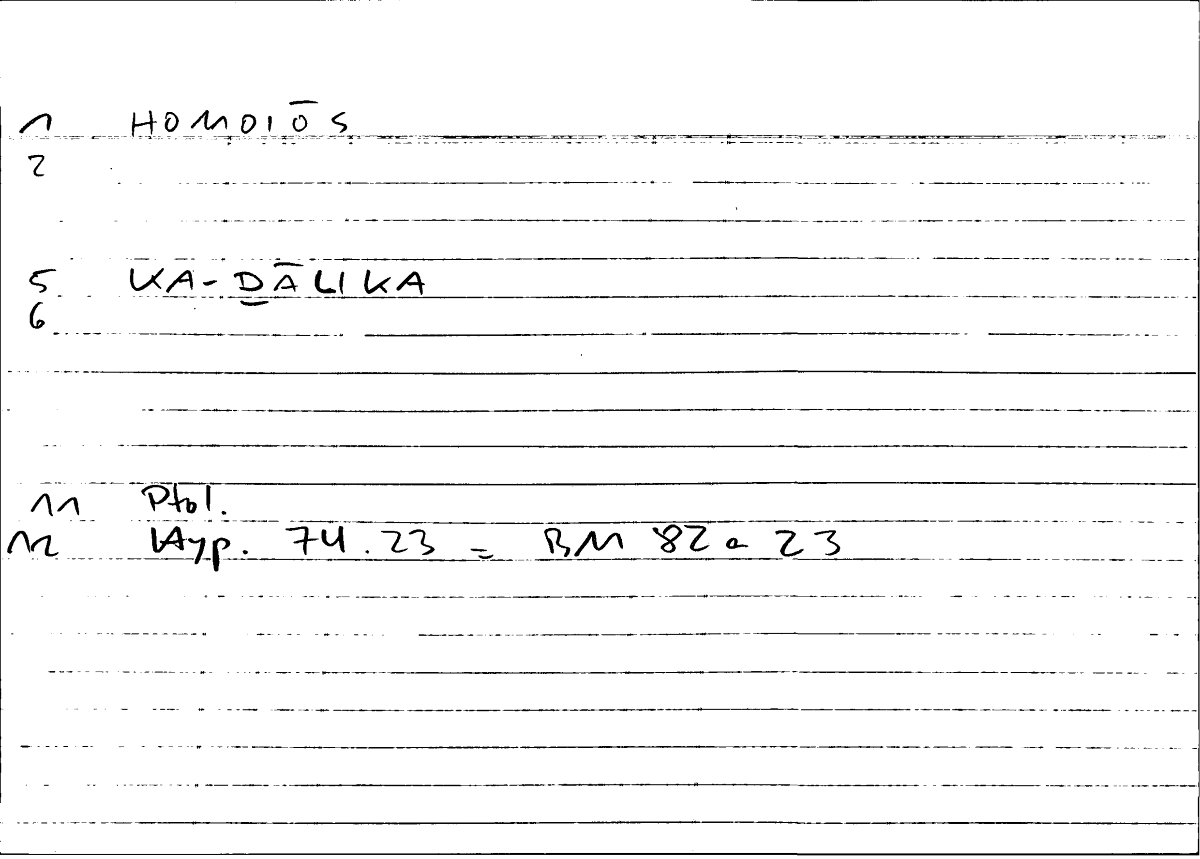 1 HOMOIŌS
2
5 KA-ḎĀLIKA
6
11 Ptol.
12 Hyp. 74.23 = BM 82a 23